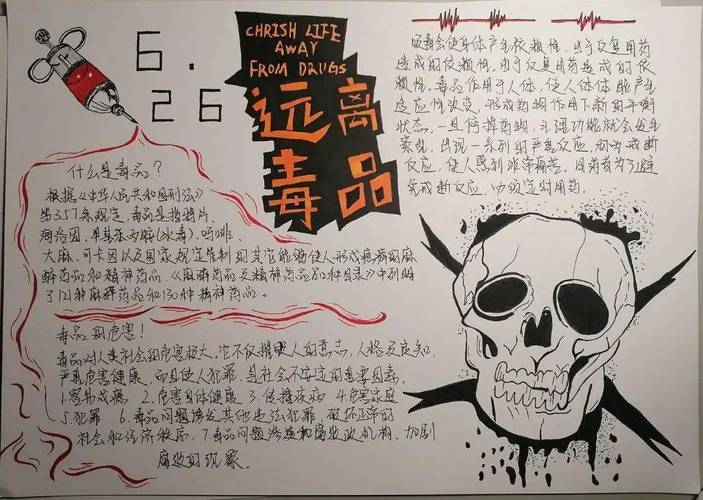 6.
26
CHRISH LIFE
AWAY
FROM DRUGS
远离
毒品
什么是毒品?
根据《中华人民共和国刑法》
第357条规定,毒品是指鸦片、
海洛因、甲基苯丙胺(冰毒)、吗啡、
大麻、可卡因以及国家规定管制的其它能够使人形成瘾癖的麻
醉药品和精神药品。《麻醉药品及精神药品品种目录》中列明
了121种麻醉药品和130种精神药品。
毒品的危害!
毒品对人类社会的危害极大,它不仅摧人的意志、人格及良知,
严重危害健康,而且使人犯罪,是社会不安定的重要因素,
1.容易成瘾 2.危害身体健康 3.传播疾病 4.危害家庭
5.犯罪 6.毒品问题诱发其他违法犯罪,破坏正常的
社会和经济秩序,7.毒品问题渗透和腐蚀政机构、加剧
腐败的现象。
吸毒会使身体产生依赖性,由于反复用药
造成的依赖性。由于反复用药造成的依
赖性。毒品作用于人体,使人体体能产生
适应性改变,形成药物作用下新的平衡
状态。一旦停掉药物,生理功能就会发生
紊乱,出现一系列的严重反应,称为戒断
反应,使人感到非常痛苦。用药者为了避
免戒断反应,必须定时用药。